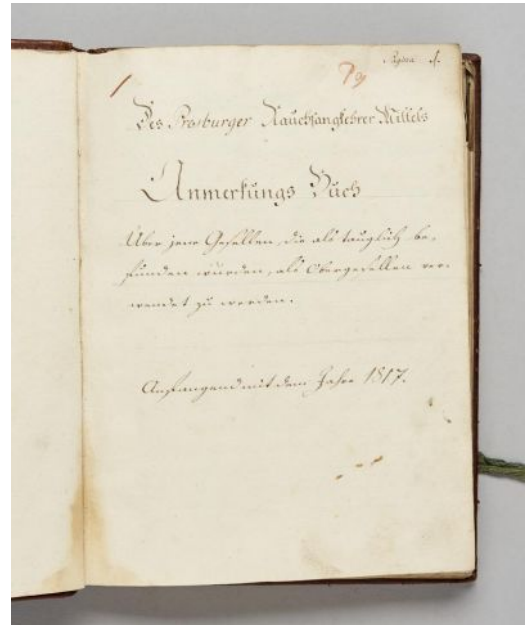 Pagina 1.
1
79
Des Presburger Rauchfangkehrer Mittels
Anmerkungs Buch
Über jene Gesellen, die als tauglich be-
funden wurden, als Obergesellen ver-
wendet zu werden.
Anfangend mit dem Jahre 1817.